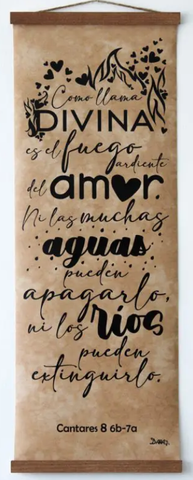 Como llama
DIVINA
es el fuego
ardiente
del amor.
Ni las muchas
aguas
pueden
apagarlo,
ni los ríos
pueden
extinguirlo.
Cantares 8 6b-7a